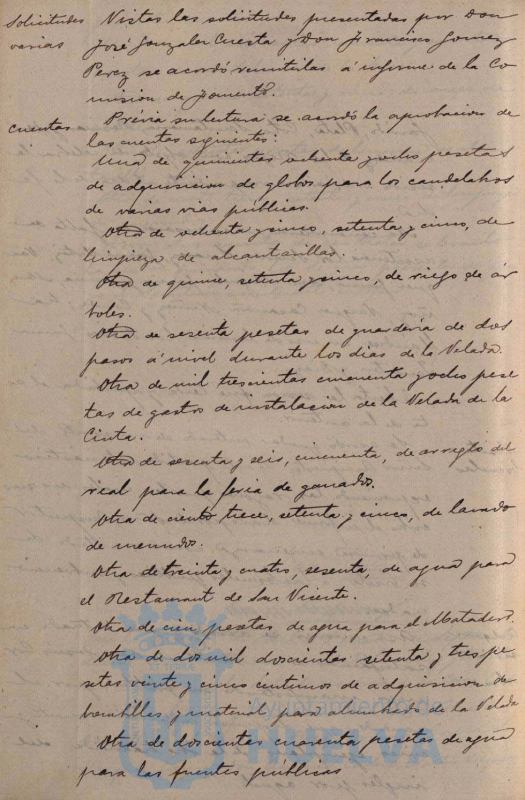 Solicitudes
varias
Vistas las solicitudes presentadas por Don
José Gonzalez Cuesta y Don Francisco Gomez
Perez se acordó remitirlas á informe de la Co
mision de fomento.
Cuentas
Prévia su lectura se acordó la aprobacion de
las cuentas siguientes:
Una de quinientas ochenta y ocho pesetas
de adquisicion de globos para los candelabros
de varias vias públicas.
Otra de ochenta y cinco, setenta y cinco, de
limpieza de alcantarillas.
Otra de quince, setenta y cinco, de riego de ár
boles.
Otra de sesenta pesetas de guarderia de dos
pasos á nivel durante los dias de la Velada.
Otra de mil trescientas cincuenta y ocho pese
tas de gastos de instalacion de la Velada de la
Cinta.
Otra de sesenta y seis, cincuenta, de arreglo del
real para la feria de ganados.
Otra de ciento trece, setenta y cinco, de lavado
de menudos.
Otra de treinta y cuatro, sesenta, de agua para
el Restaurant de San Vicente.
Otra de cien pesetas de agua para el Matadero.
Otra de dos mil doscientas setenta y tres pe
setas veinte y cinco céntimos de adquisicion de
bombillas y material para alumbrado de la Velada
Otra de doscientas cuarenta pesetas de agua
para las fuentes públicas
Ayuntamiento de
HUELVA